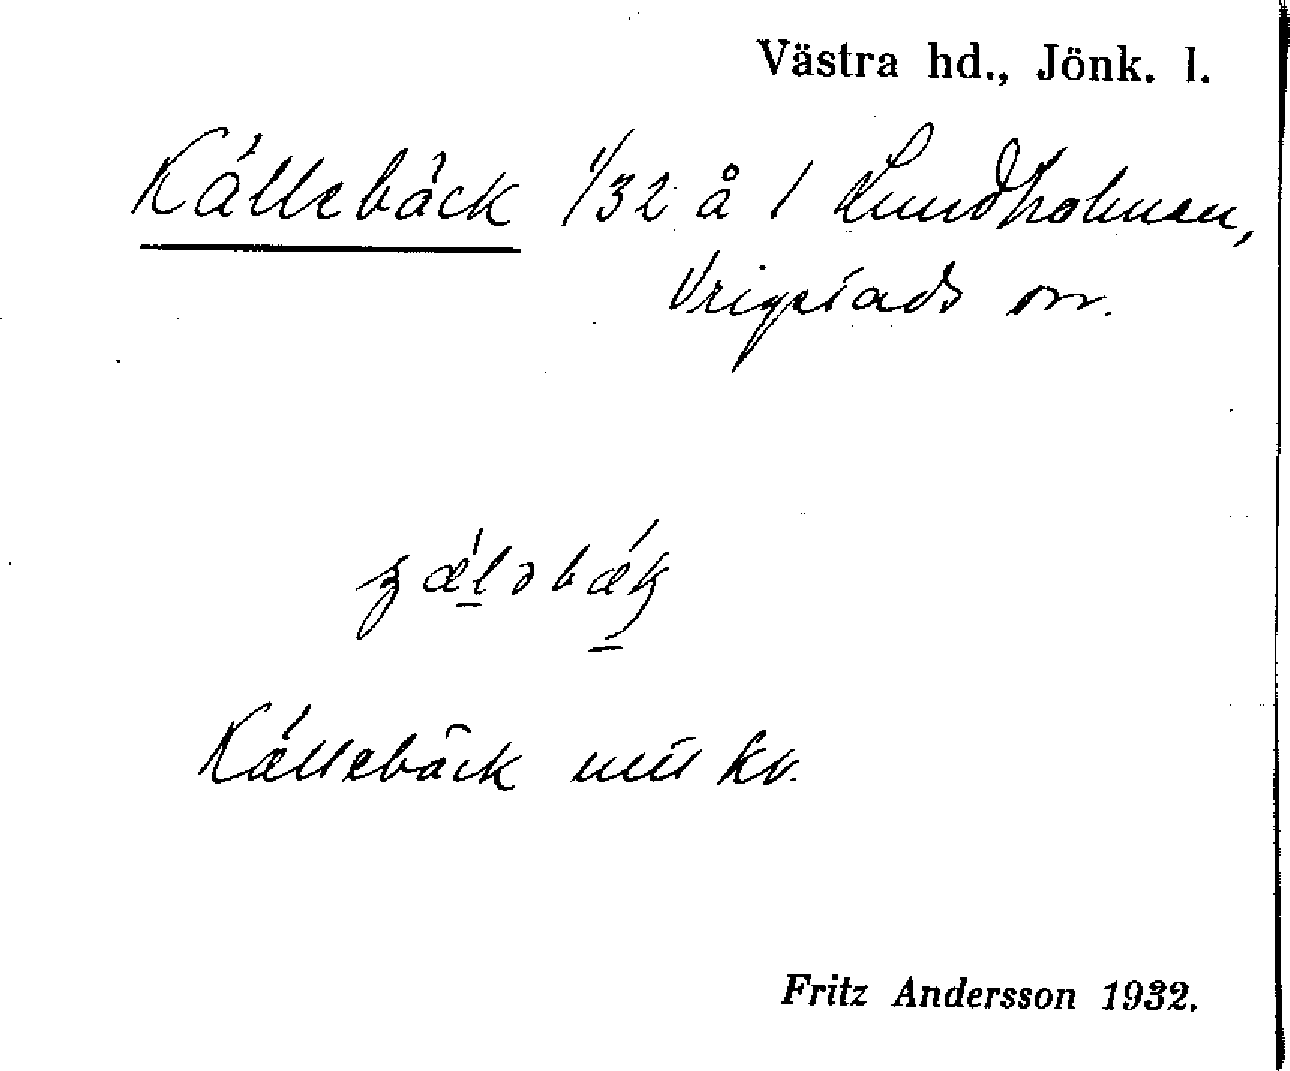 Västra hd., Jönk. l.
Källebäck 1/32 å 1 Lundholmen,
Vrigstads sn.
Källebäck
Fritz Andersson 1932.